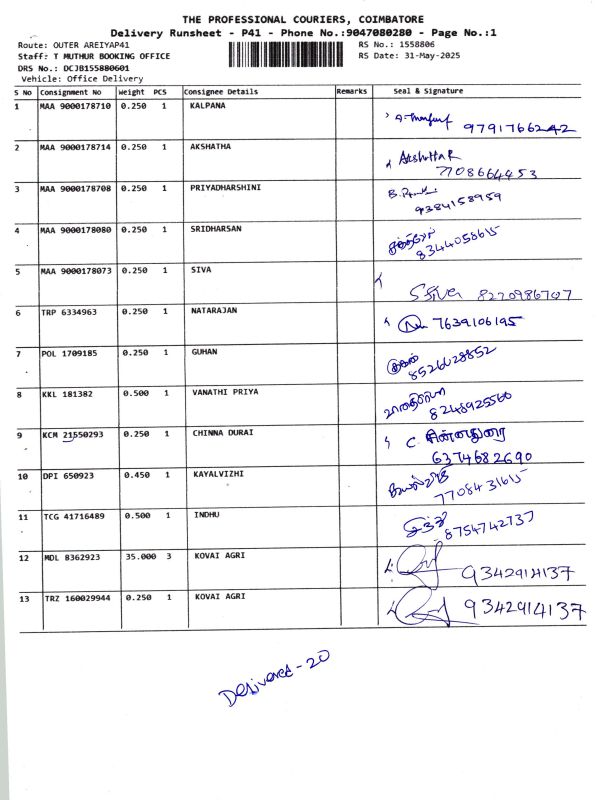 THE PROFESSIONAL COURIERS, COIMBATORE
Delivery Runsheet - P41 - Phone No.:9047080280 - Page No.:1
Route: OUTER AREIYAP41 RS No.: 1558806
Staff: T MUTHUR BOOKING OFFICE RS Date: 31-May-2025
DRS No.: DCJB155880601
Vehicle: Office Delivery
S No Consignment No Weight PCS Consignee Details Remarks Seal & Signature
1 MAA 9000178710 0.250 1 KALPANA
9791766242
2 MAA 9000178714 0.250 1 AKSHATHA Akshatha R
7708664453
3 MAA 9000178708 0.250 1 PRIYADHARSHINI
9384158959
4 MAA 9000178080 0.250 1 SRIDHARSAN
8344058615
5 MAA 9000178073 0.250 1 SIVA
S Siva 8220986707
6 TRP 6334963 0.250 1 NATARAJAN 7639106195
7 POL 1709185 0.250 1 GUHAN குகன்
8526028852
8 KKL 181382 0.500 1 VANATHI PRIYA
8248925560
9 KCM 21550293 0.250 1 CHINNA DURAI C சின்னதுரை
6374682690
10 DPI 650923 0.450 1 KAYALVIZHI கயல்விழி
7708431615
11 TCG 41716489 0.500 1 INDHU இந்து
8754742737
12 MDL 8362923 35.000 3 KOVAI AGRI 9342914137
13 TRZ 160029944 0.250 1 KOVAI AGRI 9342914137
Delivered - 20